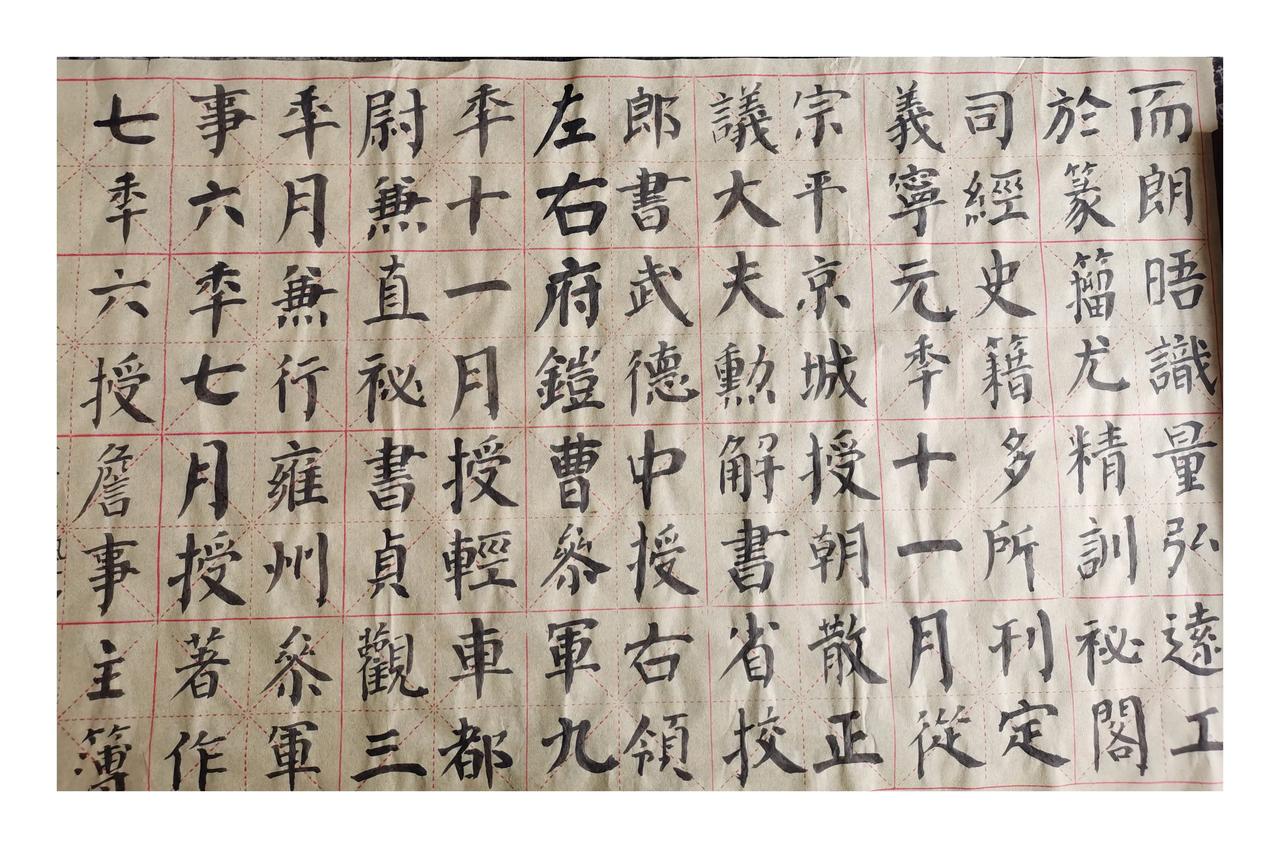 而朗晤識量弘遠工
於篆籀尤精訓祕閣
司經史籍多所刊定
義寧元秊十一月從
宗平京城授朝散正
議大夫勲解書省挍
郎書武德中授右領
左右府鎧曹叅軍九
秊十一月授輕車都
尉兼直祕書貞觀三
秊月兼行雍州叅軍
事六秊七月授著作
七秊六授詹事主簿